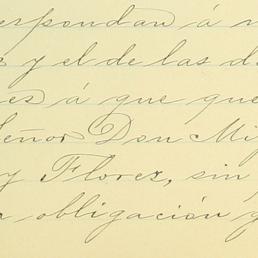 espondan á n
y el de las d
es á que que
Señor Don Mig
y Florez, sin
obligación q